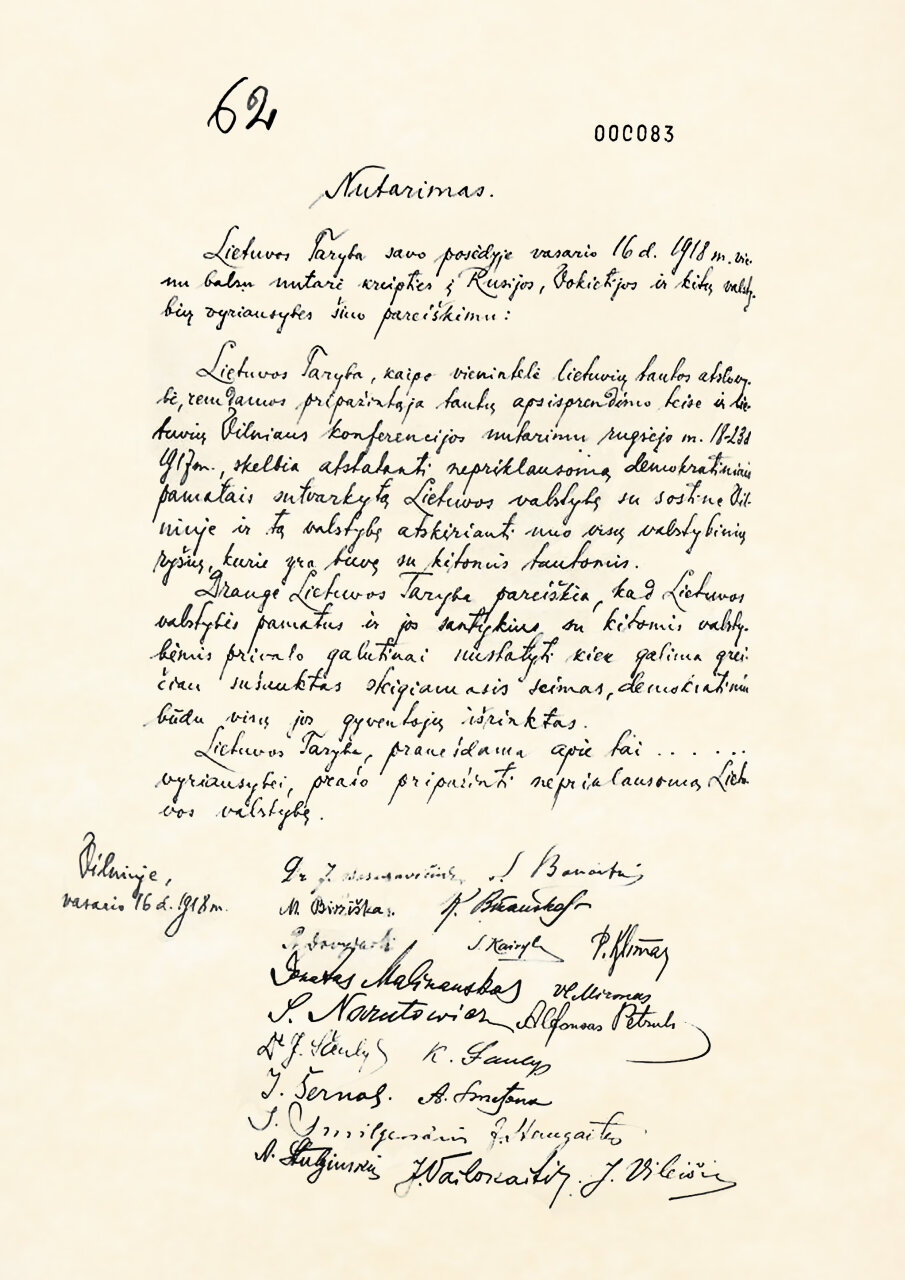 62
000083
Nutarimas.
Lietuvos Taryba savo posėdyje vasario 16 d. 1918 m. vie-
nu balsu nutarė kreipties į Rusijos, Vokietijos ir kitų valsty-
bių vyriausybes šiuo pareiškimu:
Lietuvos Taryba, kaipo vienintelė lietuvių tautos atstovy-
bė, remdamos pripažintąja tautų apsisprendimo teise ir lie-
tuvių Vilniaus konferencijos nutarimu rugsėjo m. 18-23 d
1917 m., skelbia atstatanti nepriklausomą demokratiniais
pamatais sutvarkytą Lietuvos valstybę su sostine Vil-
niuje ir tą valstybę atskirianti nuo visų valstybinių
ryšių, kurie yra buvę su kitomis tautomis.
Drauge Lietuvos Taryba pareiškia, kad Lietuvos
valstybės pamatus ir jos santykius su kitomis valsty-
bėmis privalo galutinai nustatyti kiek galima grei-
čiau sušauktas steigiamasis seimas, demokratiniu
būdu visų jos gyventojų išrinktas.
Lietuvos Taryba, pranešdama apie tai . . . . . .
vyriausybei, prašo pripažinti nepriklausomą Lietu-
vos valstybę.
Vilniuje,
vasario 16 d. 1918 m.
Dr J. Basanavičius S. Banaitis
M. Biržiška K. Bizauskas
S. Kairys P. Klimas
Donatas Malinauskas Vl. Mironas
S. Narutowicz Alfonsas Petrulis
Dr J. Šaulys K. Šaulys
J. Šernas. A. Smetona
J. Smilgevičius J. Staugaitis
A. Stulginskis J. Vailokaitis. J. Vileišis